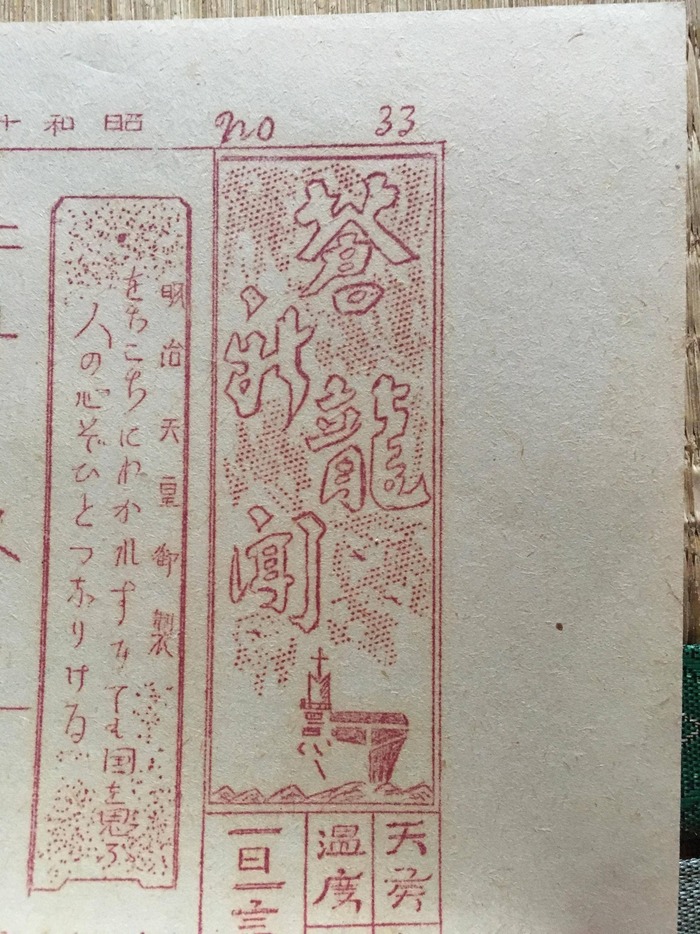 No 33
昭和十
蒼龍
新聞
明治天皇御製
をちこちにわかれすみても国を思ふ
人の心ぞひとつなりける
温度
一日一言